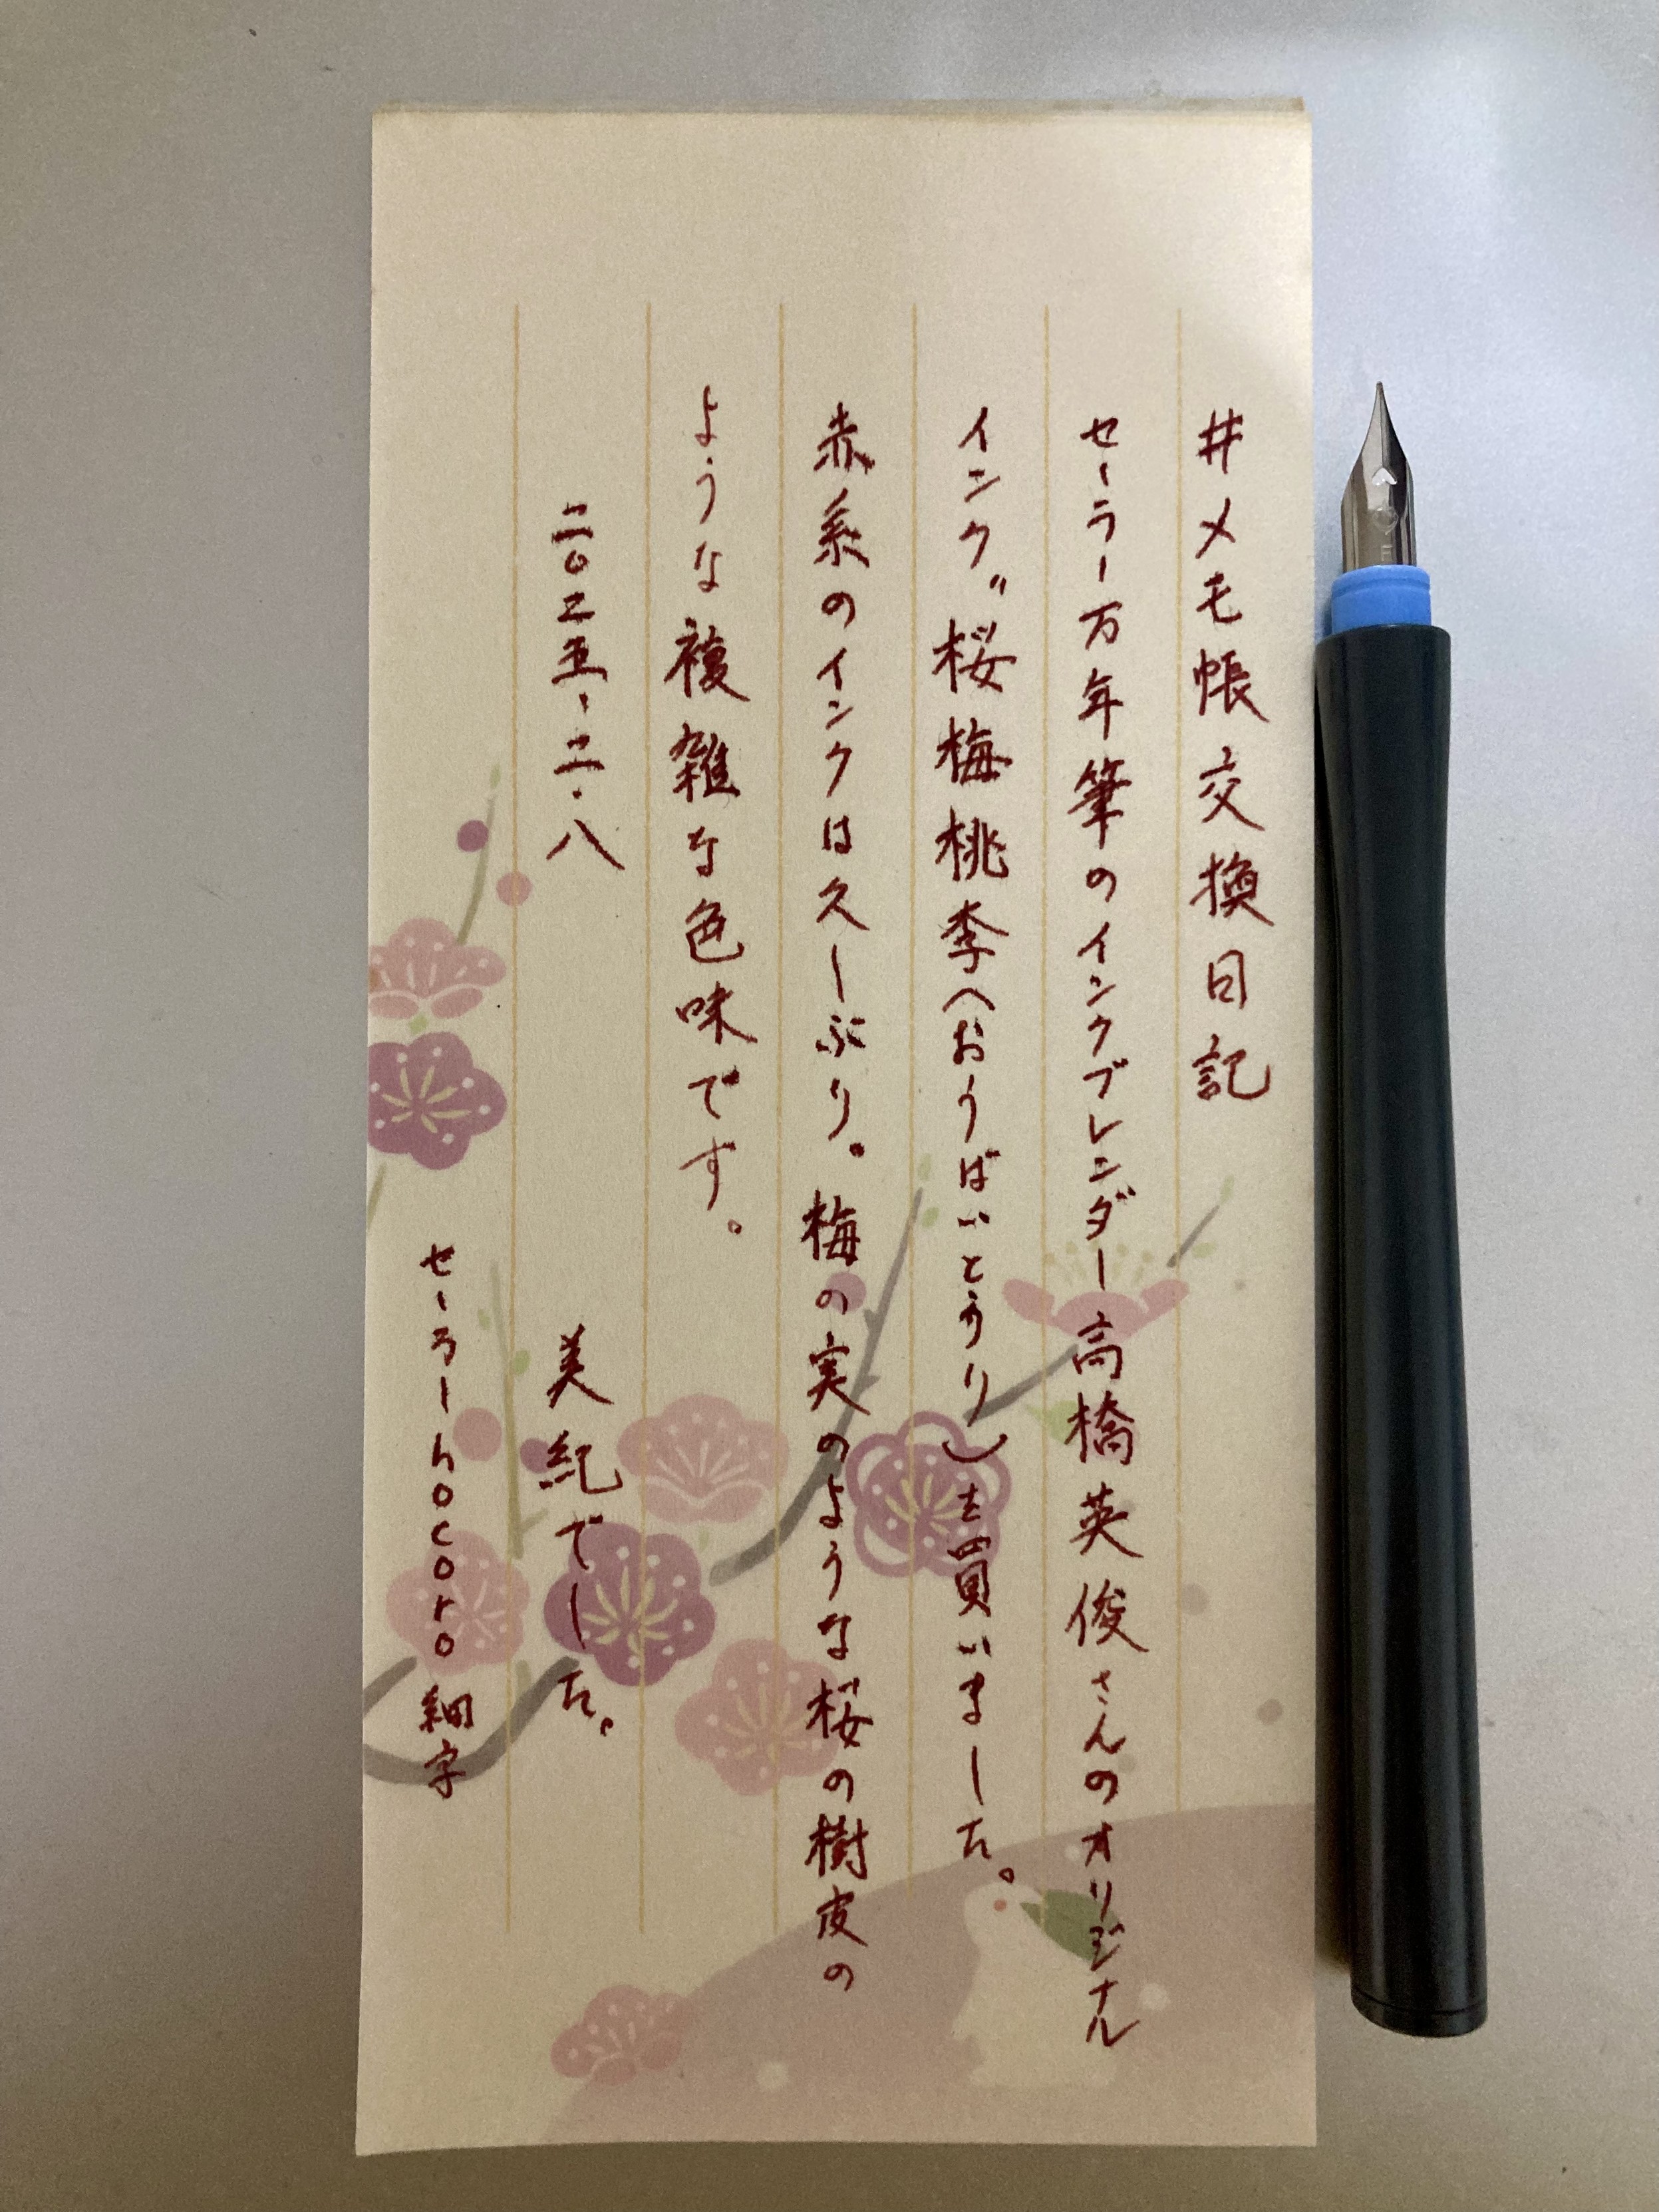 #メモ帳交換日記
セーラー万年筆のインクブレンダー高橋英俊さんのオリジナル
インク〝桜梅桃李(おうばいとうり)を買いました。
赤系のインクは久しぶり。梅の実のような桜の樹皮の
ような複雑な色味です。
二〇二五.二.八
美紀でした。
セーラーhocoro 細字